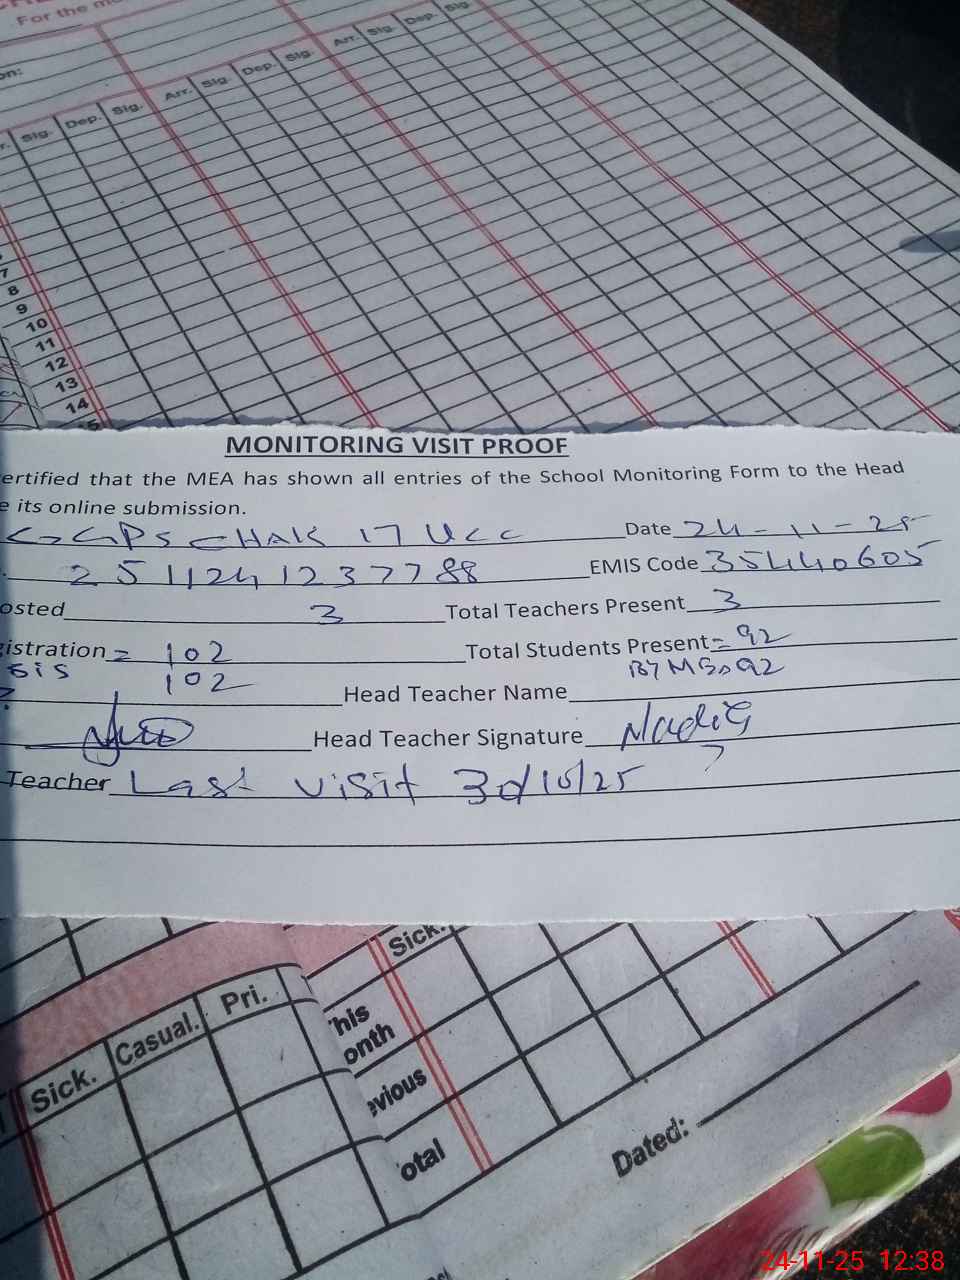 For the m
on:
Sig. Dep. Sig. Arr. Sig. Dep. Sig. Arr. Sig. Dep. Sig.
7
8
9
10
11
12
13
14
15
MONITORING VISIT PROOF
ertified that the MEA has shown all entries of the School Monitoring Form to the Head
e its online submission.
GGPS CHAK 17 UCC Date 24-11-25
2511241237788 EMIS Code 35440605
osted 3 Total Teachers Present 3
gistration = 102 Total Students Present = 92
SiS 102 By MEA 92
Head Teacher Name
Head Teacher Signature Nadia
Teacher Last visit 30/10/25
Sick.
Sick. Casual. Pri.
This
onth
evious
otal
Dated:
24-11-25 12:38